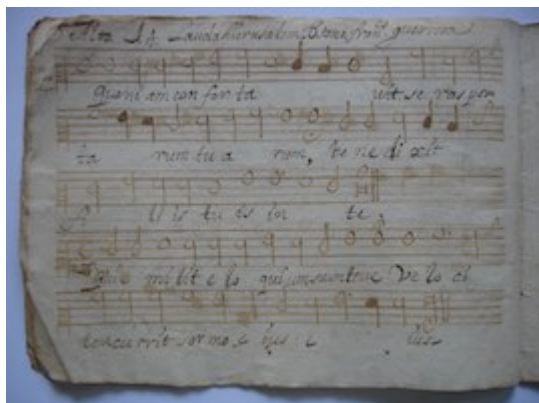 Alto A 4. Lauda Hierusalem. 8 tono fran.co guerrero
Quoni am con for ta uit se ras por
ta rum tu a rum, be ne di xit
li is tu is in te,
Qui e mi tit e lo qui um suum trae Ve lo ci
ter cu rrit ser mo e ius : e ius